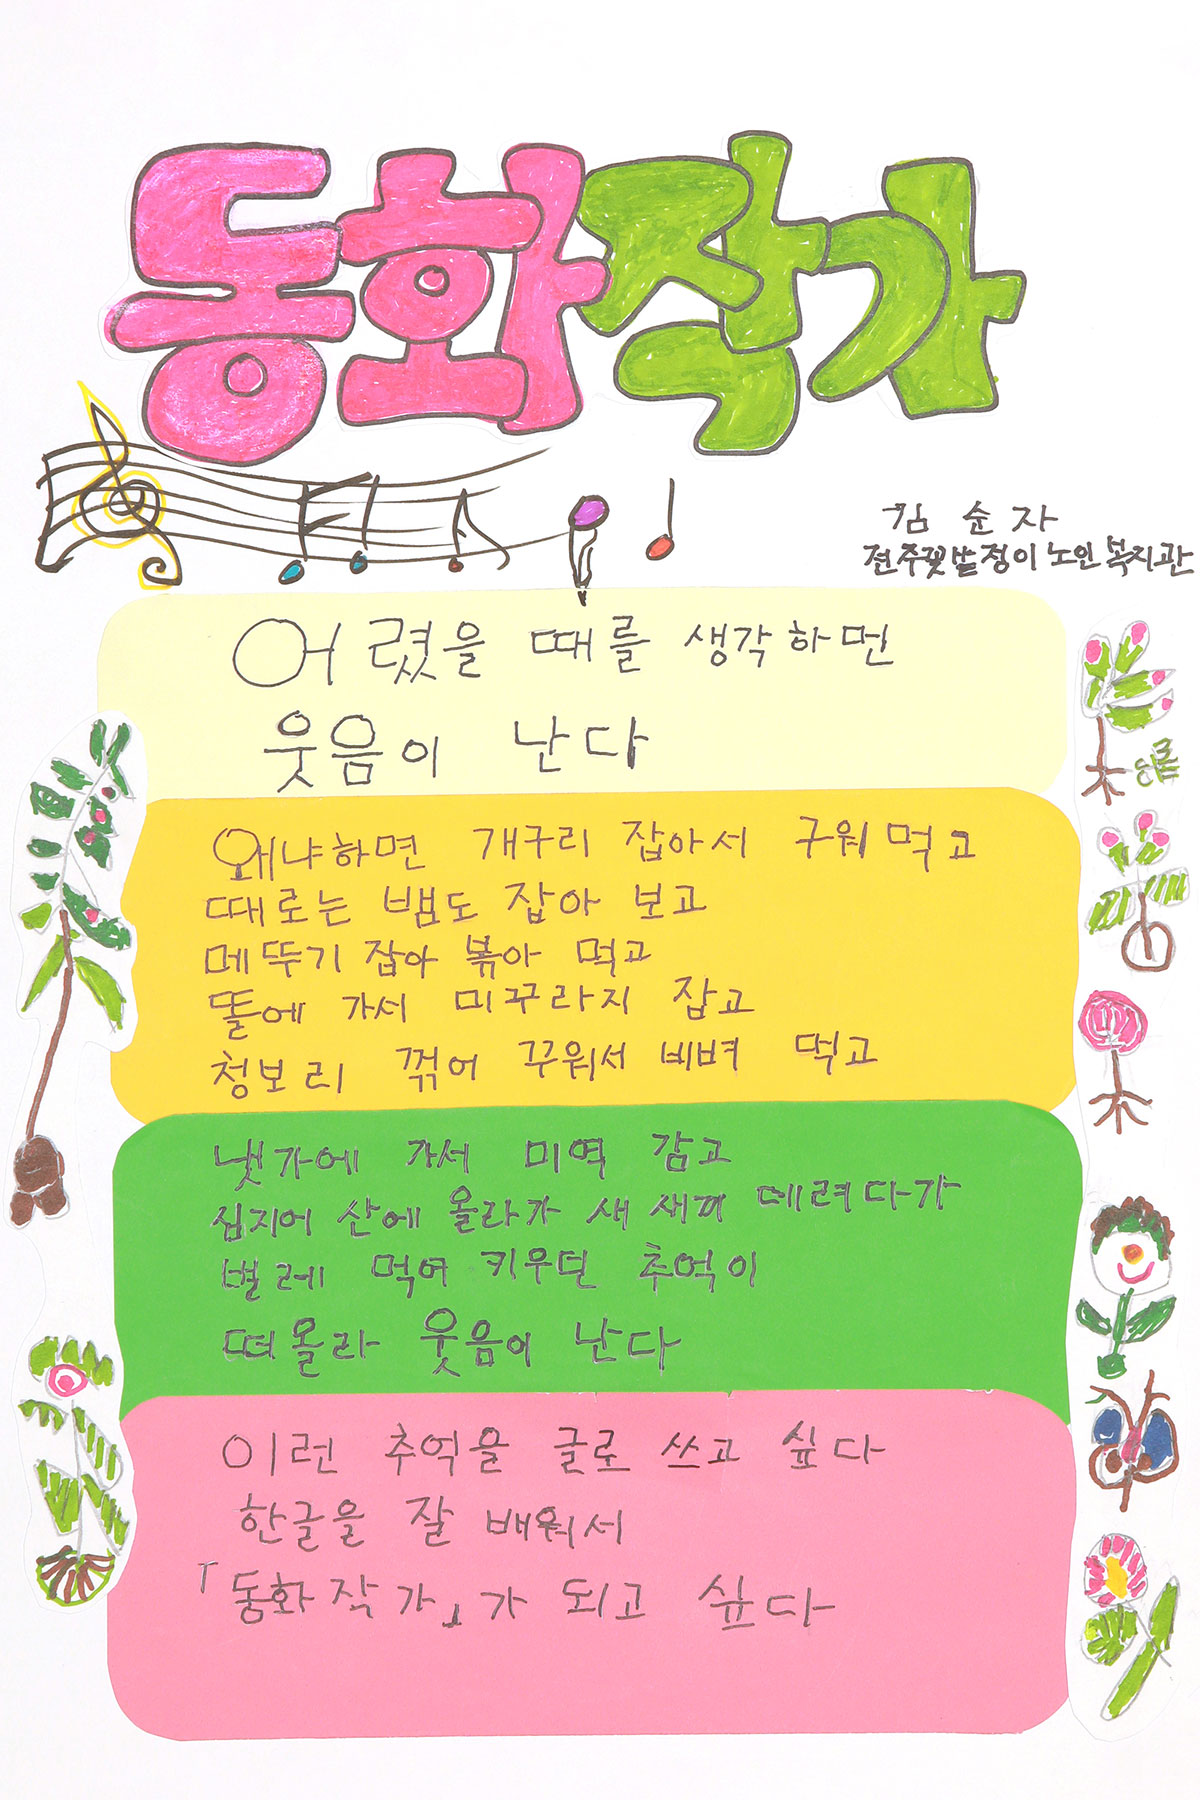 동화작가
김 순 자
전주꽃밭정이 노인 복지관
어렸을 때를 생각하면
웃음이 난다
왜냐하면 개구리 잡아서 구워 먹고
때로는 뱀도 잡아 보고
메뚜기 잡아 볶아 먹고
똘에 가서 미꾸라지 잡고
청보리 꺾어 꾸워서 비벼 먹고
냇가에 가서 미역 감고
심지어 산에 올라가 새 새끼 데려다가
벌레 먹여 키우던 추억이
떠올라 웃음이 난다
이런 추억을 글로 쓰고 싶다
한글을 잘 배워서
「동화작가」가 되고 싶다